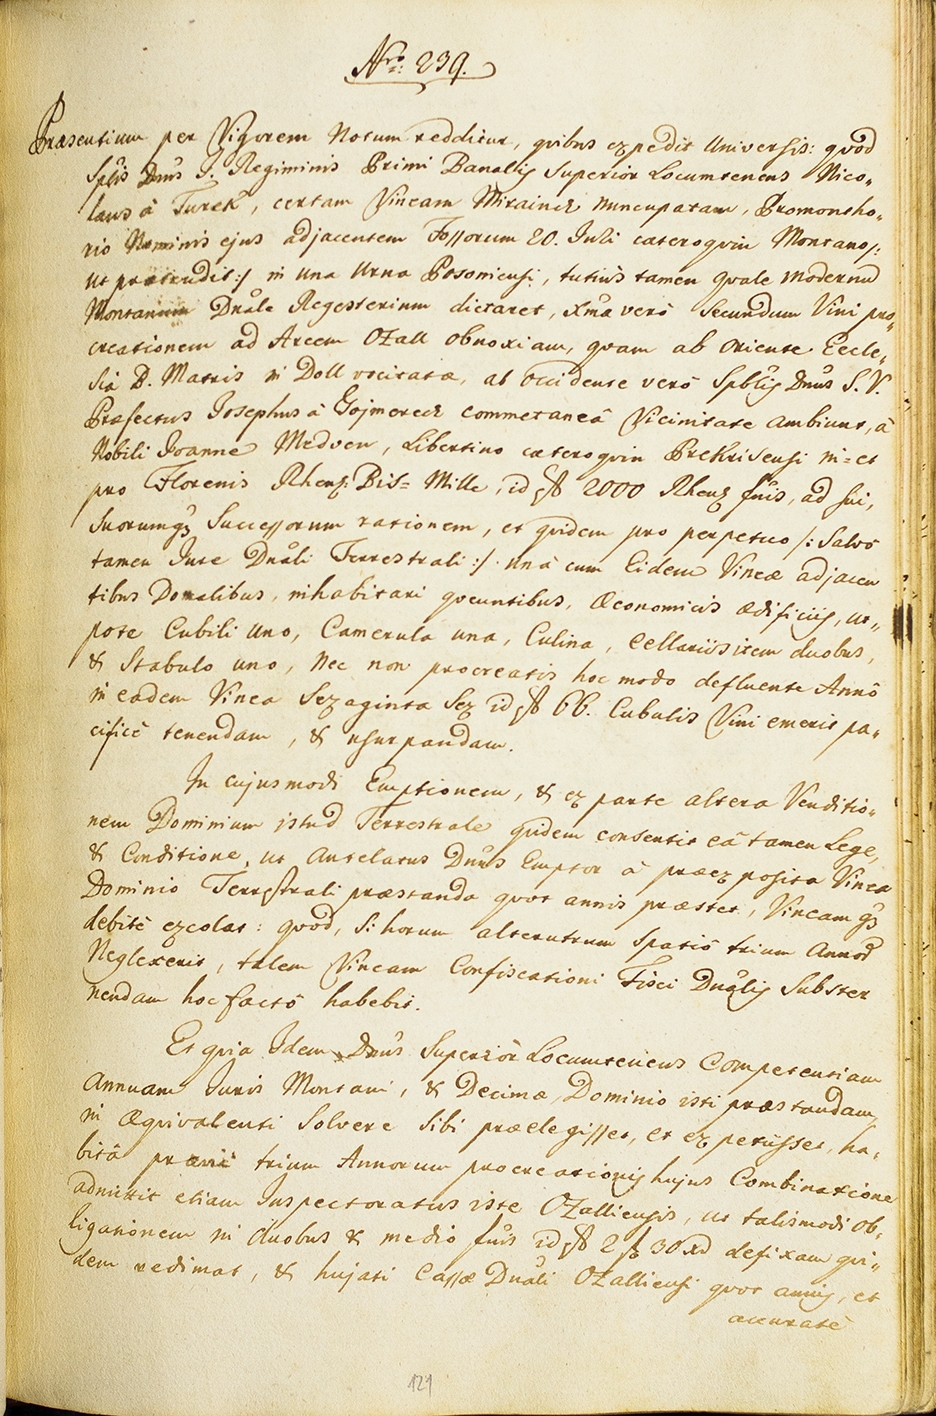 Nro: 239.
Præsentium per Vigorem Notum redditur, quibus expedit Universis: quod
Splis Dnus I. Regiminis Primi Banalis Superior Locumtenens Nico„
laus â Turek, certam Vineam Mirainck nuncupatam, Promontho„
rio Nominis ejus adjacentem Fossorum 20. Juli cæteroquin Montano /:
ut prætendit :/ in una Urna Posoniensi, tutius tamen quale modernũ
Montanum Dnale Regesterium dictaret, Xma verò Secundum Vini pro„
creationem ad Arcem Ozall obnoxiam, quam ab Oriente Eccle„
sia B. Matris in Doll vocitatæ, ab Occidente verò Spblis Dnus S. V.
Præfectus Josephus â Gojmerech commetaneâ Vicinitate ambiunt, â
Nobili Joanne Medven, Libertino cæteroquin Prekrisensi in = et
pro Florenis Rhens: Bis = Mille, id est 2000 Rhens fnis, ad sui,
Suorumq3 Successorum rationem, et quidem pro perpetuo /: Salvo
tamen Jure Dnali Terrestrali :/ unà cum Eidem Vineæ adjacen
tibus Domalibus, inhabitari queuntibus, Œconomicis ædificiis, ut„
pote Cubili uno, Camerula una, Culina, Cellariis item duobus,
& Stabulo uno, Nec non procreatis hoc modo defluente Annô
in eadem Vinea Sexaginta Sex id est 66. Cubulis Vini emerit pa„
cificè tenendam, & usurpandam.
In cujusmodi Emptionem, & ex parte altera Venditio„
nem Dominium istud Terrestrale quidem consentit eâ tamen Lege,
& Conditione, ut Antelatus Dnus Emptor â præexposita Vinea
Dominio Terrestrali præstanda quot annis præstet, Vineam q3
debitè excolat: quod, si horum alterutrum spatiô trium Annoꝝ
Neglexerit, talem Vineam Confiscationi Fisci Dnalis Subster
nendam hoc factô habebit.
Et quia Idem Dnus Superior Locumtenens Competentiam
Annuam Juris Montani, & Decimæ Dominio isti præstandam,
in Æquivalenti Solvere sibi præelegisset, et expetiisset, ha„
bitâ præviè trium Annorum procreationis hujus Combinatione
admittit etiam Inspectoratus iste Ozalliensis, ut talismodi ob„
ligationem in duobus & medio fnis id est 2 f 30 xd defixam qui„
dem redimat, & hujati Cassæ Dnali Ozalliensi quot annis, et
accuratè
121